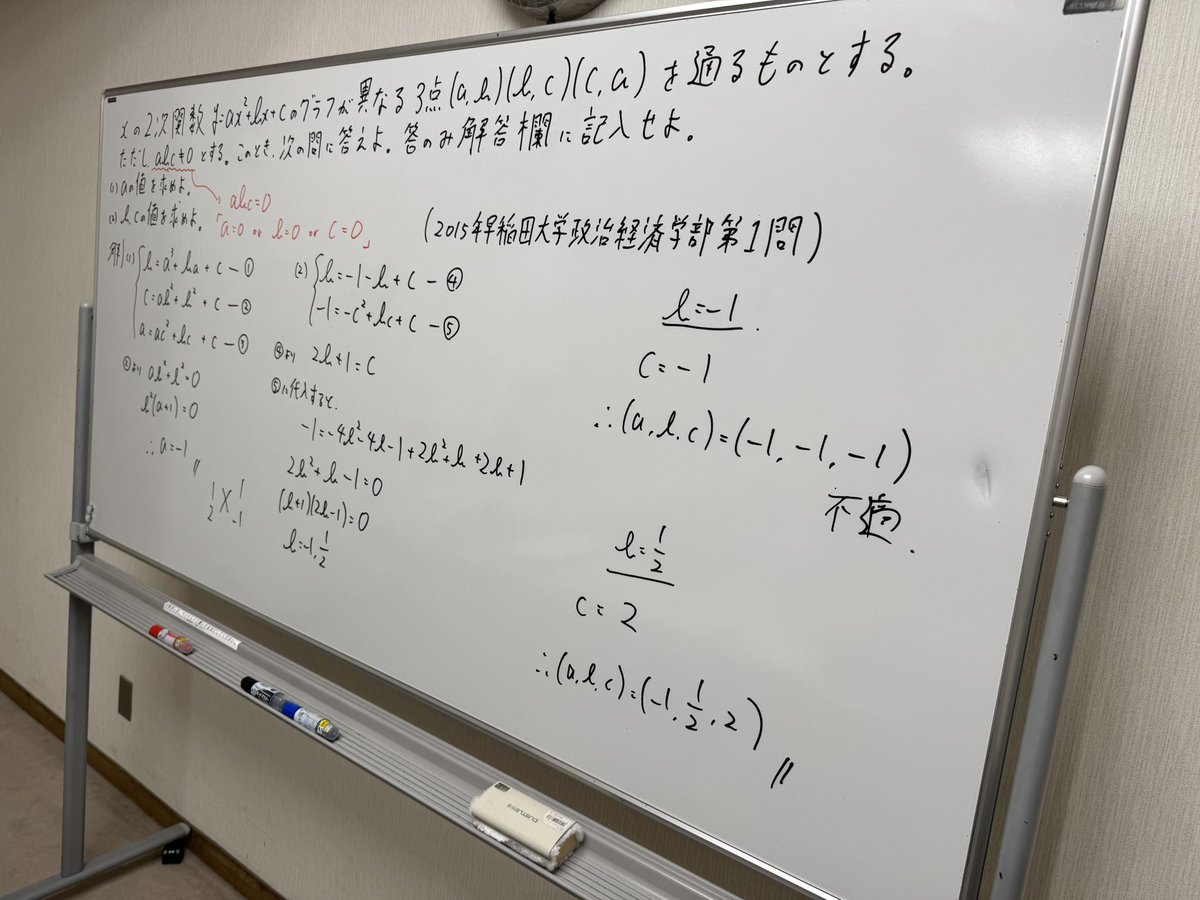 xの2次関数 y=ax²+bx+cのグラフが異なる3点(a,b)(b,c)(c,a)を通るものとする。
ただし、abc≠0とする。このとき、次の問に答えよ。答のみ解答欄に記入せよ。
(1) aの値を求めよ。
(2) b,cの値を求めよ。
abc=0
「a=0 or b=0 or c=0」
(2015年早稲田大学政治経済学部第1問)
解)(1) b=a³+ba+c-①
c=ab²+b²+c-②
a=ac²+bc+c-③
②より ab²+b²=0
b²(a+1)=0
∴a=-1
(2) b=-1-b+c-④
-1=-c²+bc+c-⑤
④より 2b+1=c
⑤に代入すると、
-1=-4b²-4b-1+2b²+b+2b+1
2b²+b-1=0
(b+1)(2b-1)=0
b=-1, 1/2
1 1
2 -1
b=-1
c=-1
∴(a,b,c)=(-1,-1,-1)
不適.
b=1/2
c=2
∴(a,b,c)=(-1, 1/2, 2)